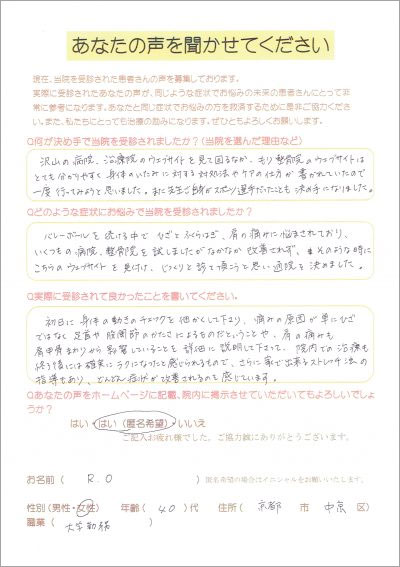 あなたの声を聞かせてください
現在、当院を受診された患者さんの声を募集しております。
実際に受診されたあなたの声が、同じような症状でお悩みの未来の患者さんにとって非
常に参考になります。あなたと同じ症状でお悩みの方を救済するために是非ご協力くださ
い。また、私たちにとっても治療の励みになります。ぜひともよろしくお願いします。
Q何が決め手で当院を受診されましたか？(当院を選んだ理由など)
沢山の病院、治療院のウェブサイトを見て回るなか、もり整骨院のウェブサイトは
とても分かりやすく身体のいたみに対する対処法やケアの仕方が書かれていたので
一度行ってみようと思いました。また先生ご自身がスポーツ選手だったことも決め手になりました。
Qどのような症状にお悩みで当院を受診されましたか？
バレーボールを続ける中でひざとふくらはぎ、肩の痛みに悩まされており、
いくつもの病院、整骨院を試しましたがなかなか改善されず、そのような時に
こちらのウェブサイトを見付け、じっくりと診て貰おうと思い通院を決めました。
Q実際に受診されて良かったことを書いてください。
初日に身体の動きのチェックを細かくして下さり、痛みの原因が単にひざ
ではなく足首や股関節のかたさによるものだということや、肩の痛みも
肩甲骨まわりから影響していることを詳細に説明して下さって、院内での治療も
終る頃には確実にラクになったと感じられるもので、さらに家で出来るストレッチ法の
指導もあり、どんどん症状が改善されるのを感じています。
Qあなたの声をホームページに記載、院内に掲示させていただいてもよろしいでしょ
うか？
はい・はい（匿名希望）・いいえ
ご記入お疲れ様でした。ご協力誠にありがとうございます。
お名前（ R.O ） 匿名希望の場合はイニシャルをお願いいたします。
性別（男性・女性） 年齢（40）代 住所（ 京都 市 中京 区）
職業（ 大学勤務 ）